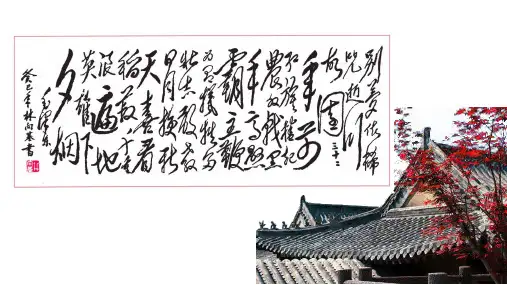 别梦依稀
咒逝川
故园三十二
年前
红旗卷起
农奴戟黑
手高悬
霸主鞭
为有牺牲多
壮志敢教
日月换新
天喜看
稻菽千重
浪遍地
英雄下
夕烟
毛泽东
癸巳年林向书